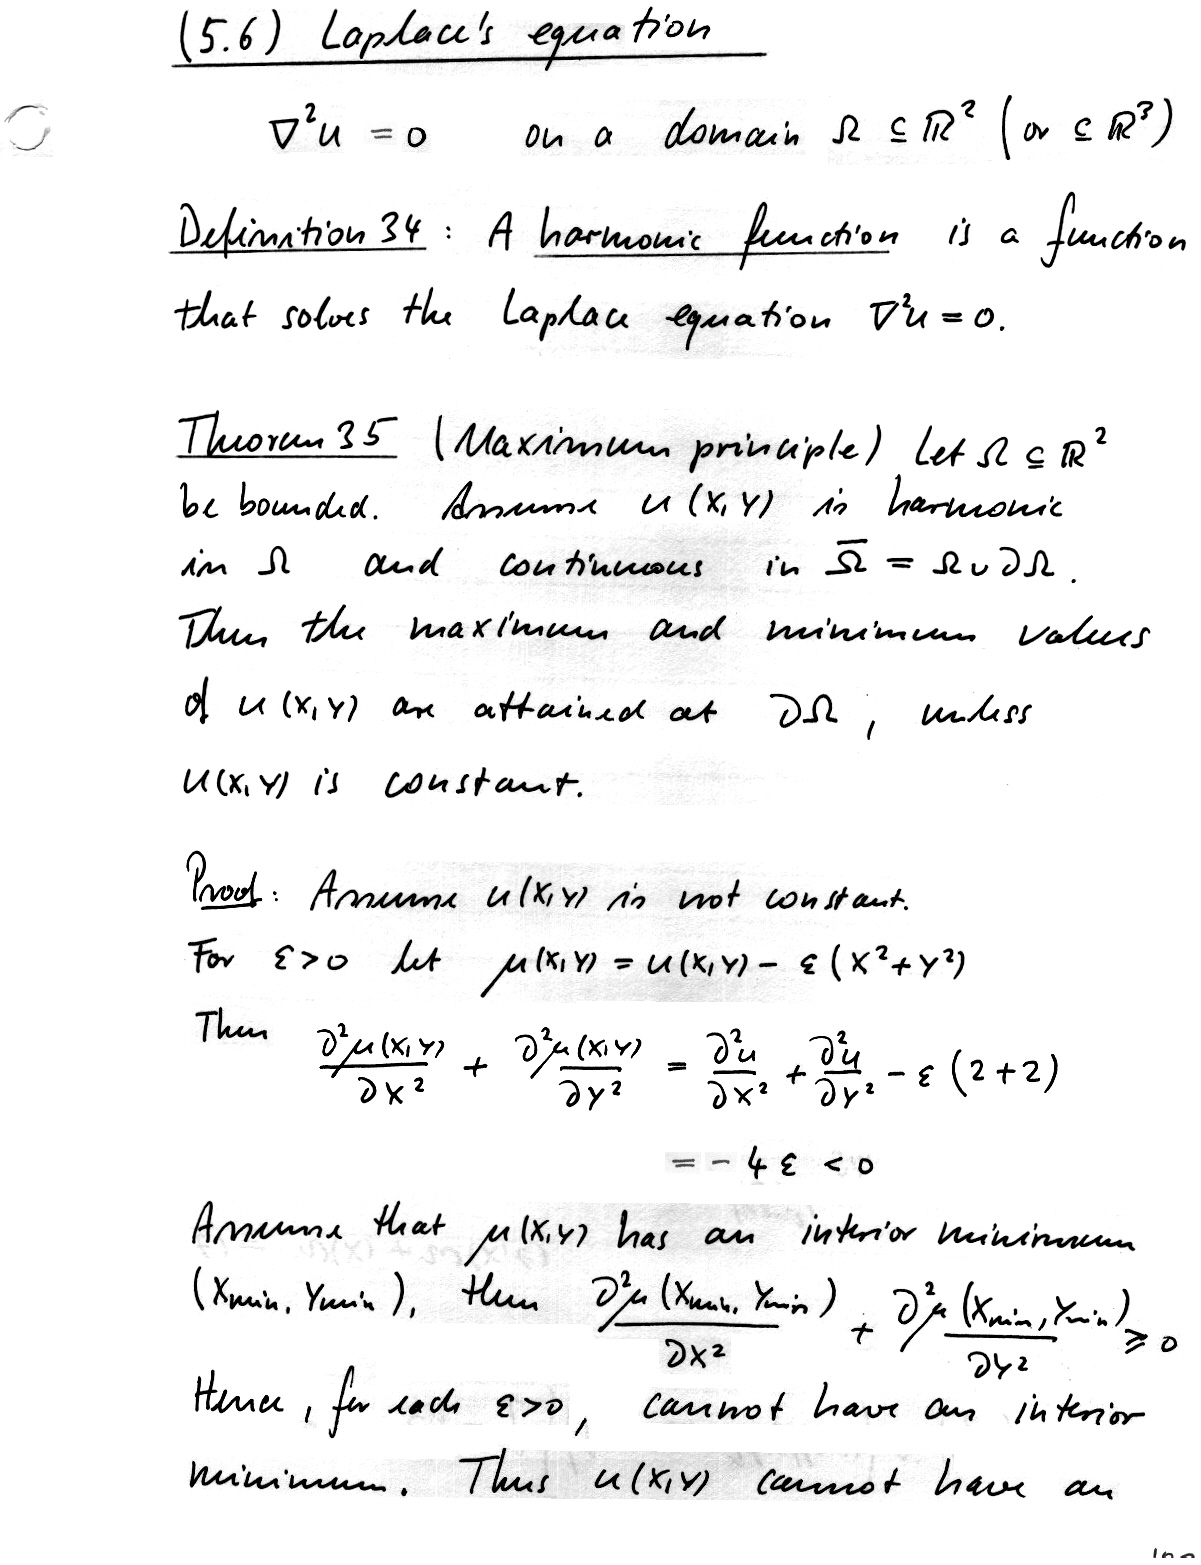 (5.6) Laplace's equation
∇²u = 0 on a domain Ω ⊆ ℝ² (or ⊆ ℝ³)
Definition 34 : A harmonic function is a function
that solves the Laplace equation ∇²u = 0.
Theorem 35 (Maximum principle) Let Ω ⊆ ℝ²
be bounded. Assume u(x,y) is harmonic
in Ω and continuous in Ω̅ = Ω ∪ ∂Ω.
Then the maximum and minimum values
of u(x,y) are attained at ∂Ω, unless
u(x,y) is constant.
Proof: Assume u(x,y) is not constant.
For ε>0 let μ(x,y) = u(x,y) - ε(x²+y²)
Then ∂²μ(x,y)/∂x² + ∂²μ(x,y)/∂y² = ∂²u/∂x² + ∂²u/∂y² - ε(2+2)
= - 4ε < 0
Assume that μ(x,y) has an interior minimum
(xmin, ymin), then ∂²μ(xmin, ymin)/∂x² + ∂²μ(xmin, ymin)/∂y² ≥ 0
Hence, for each ε>0, cannot have an interior
minimum. Thus u(x,y) cannot have an